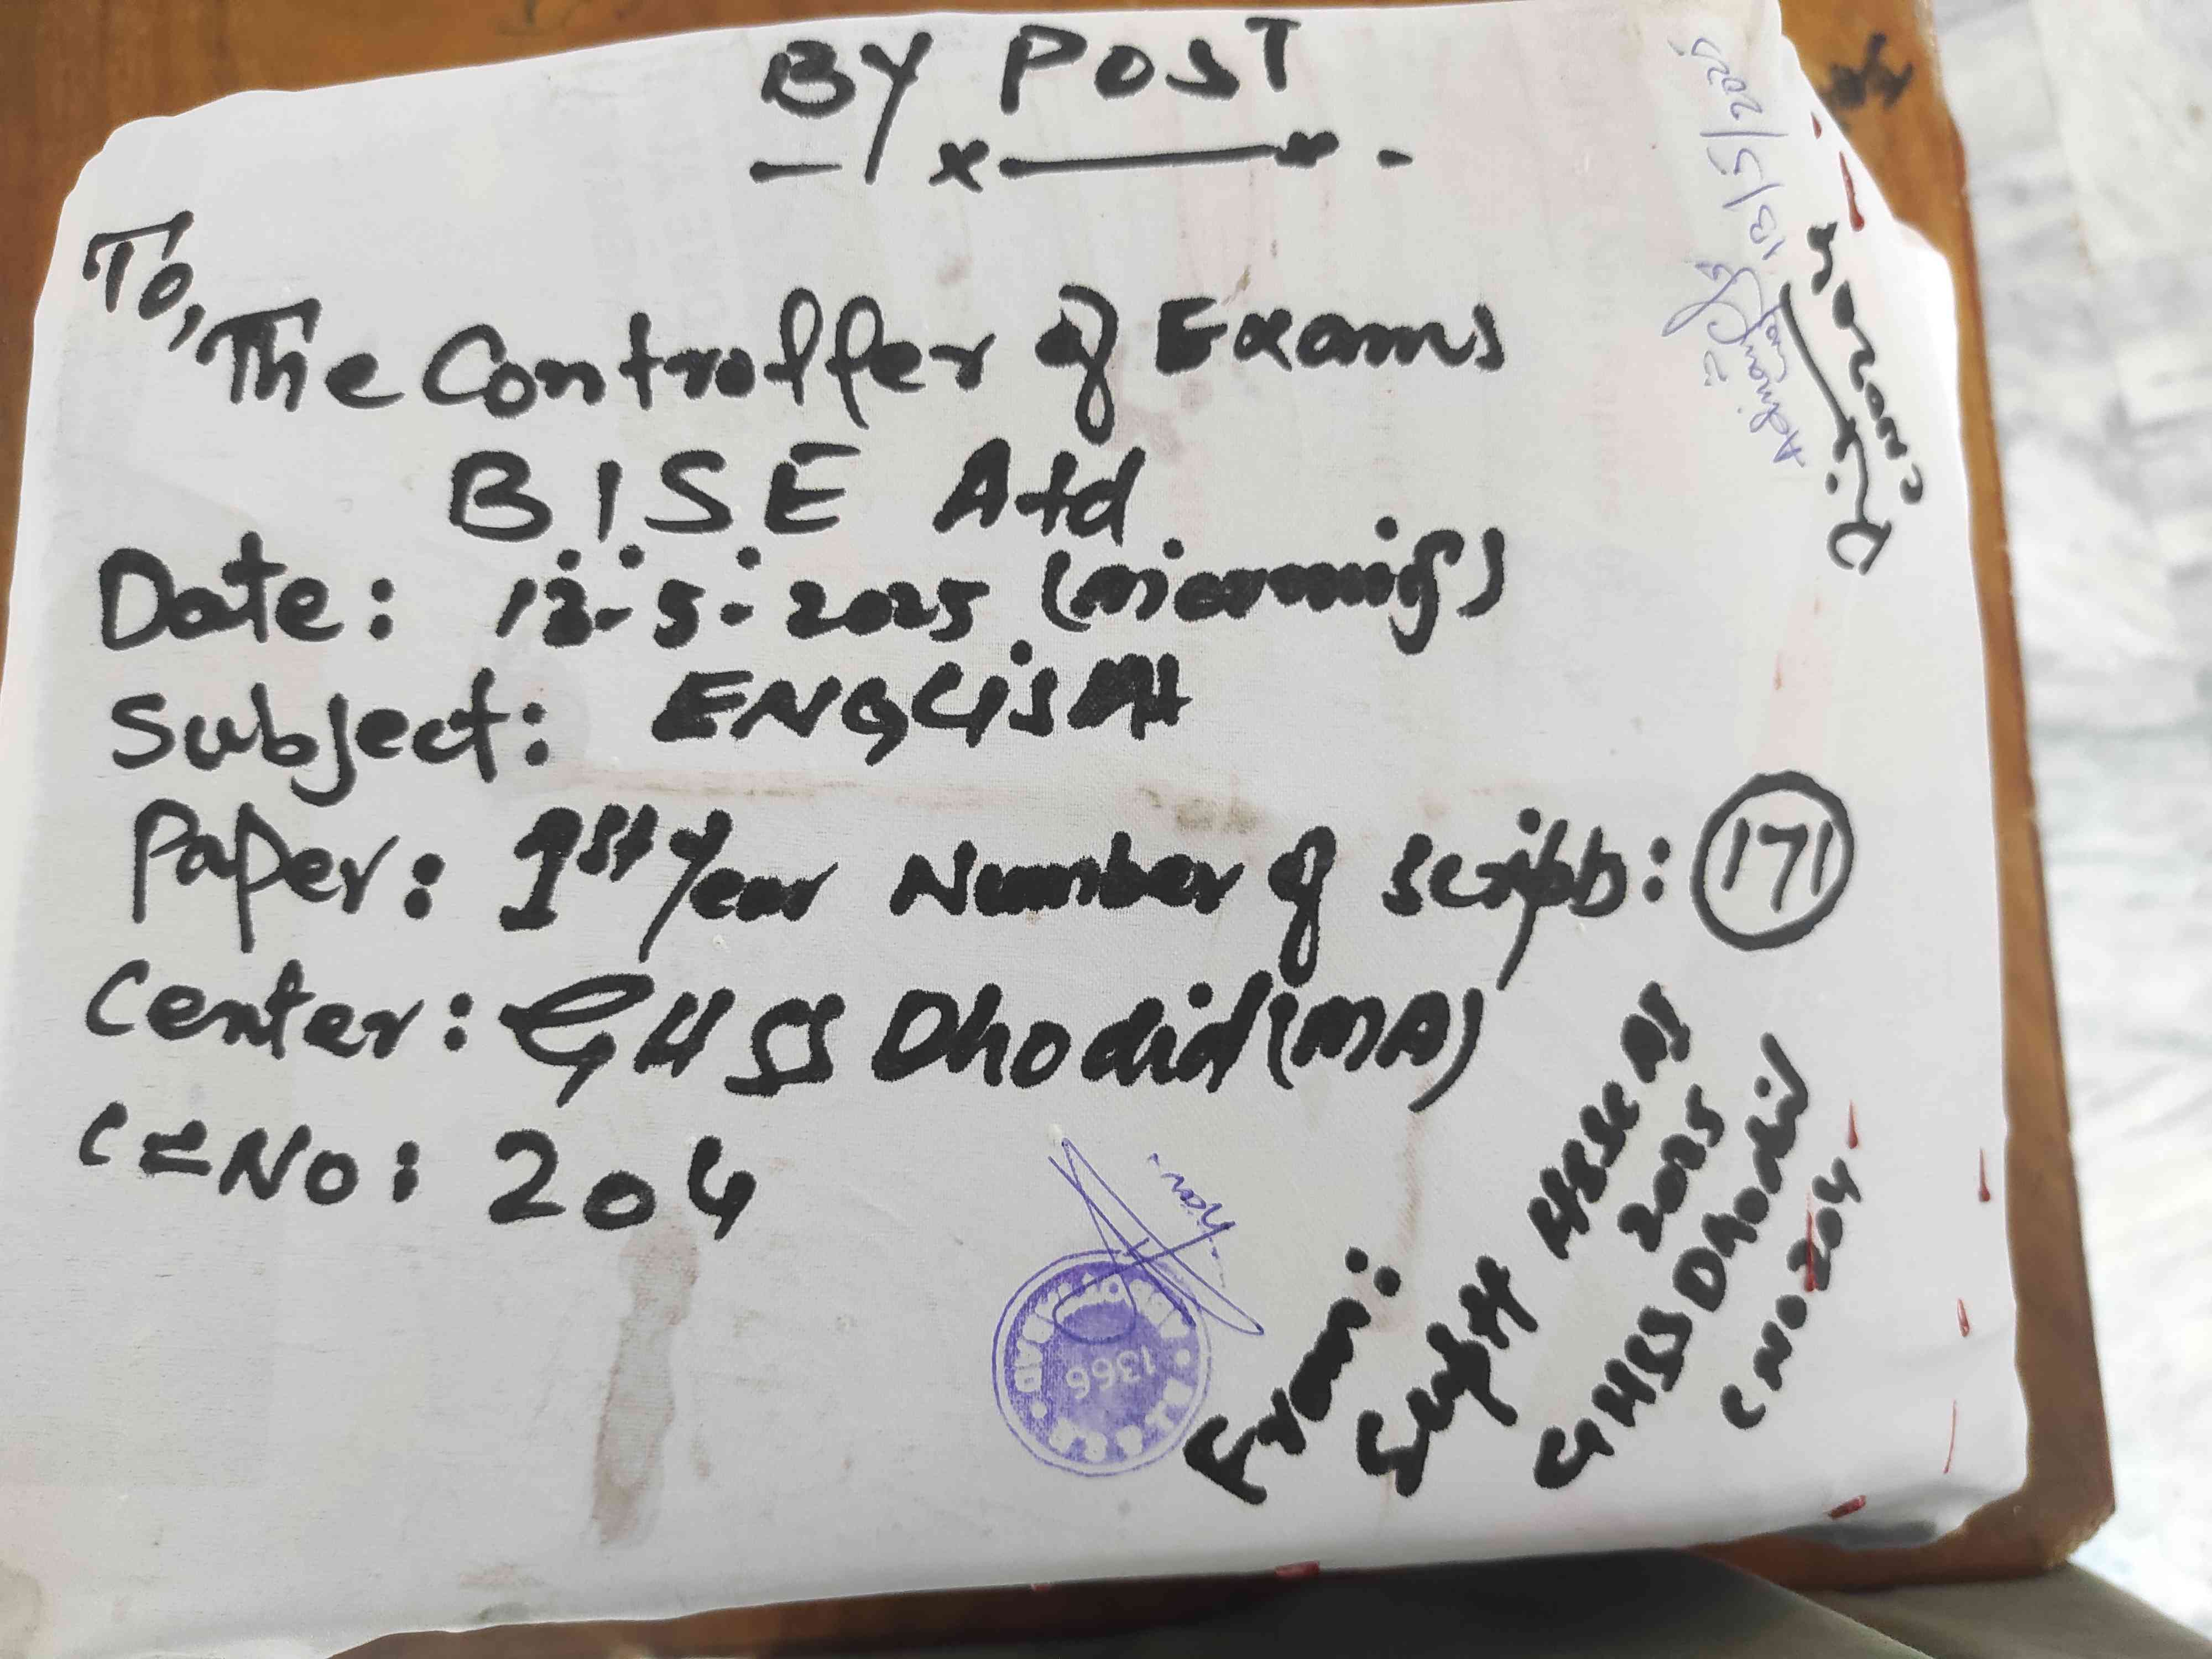 BY POST
To,
The Controller of Exams
BISE Atd.
Date: 13-5-2025 (morning)
Subject: ENGLISH
Paper: 1st Year Number of Scripts: 171
Center: GHSS Dhodial (MA)
C No: 204
Exam:
HSSC A1
2025
GHSS Dhodial
C No 204
13/5/2025
1366
C No 204